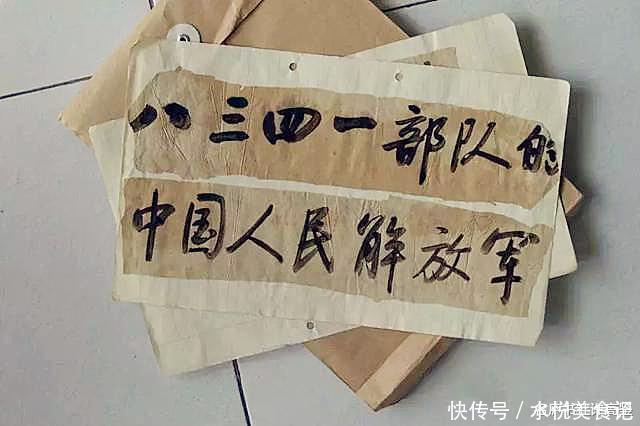 八三四一部队的
中国人民解放军
快传号 / 水悦美食记